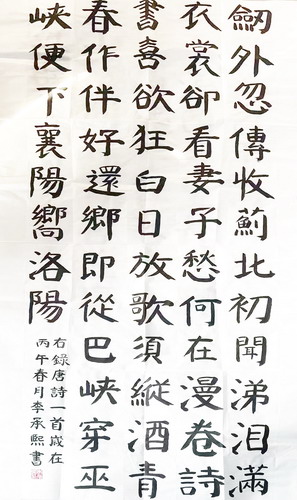 劒外忽傳收薊北初聞涕泪滿
衣裳卻看妻子愁何在漫卷詩
書喜欲狂白日放歌須縱酒青
春作伴好還鄉即從巴峽穿巫
峽便下襄陽嚮洛陽
右錄唐詩一首歲在
丙午春月李承熙書